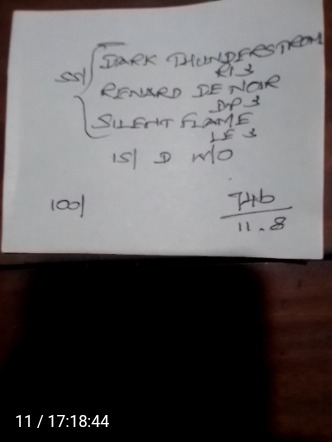 DARK THUNDERSTROM
RI 3
SS/ RENARD DE NOIR
DP 3
SILENT FLAME
LE 3
1S/ D W/O
100/
746
11.8
11 / 17:18:44